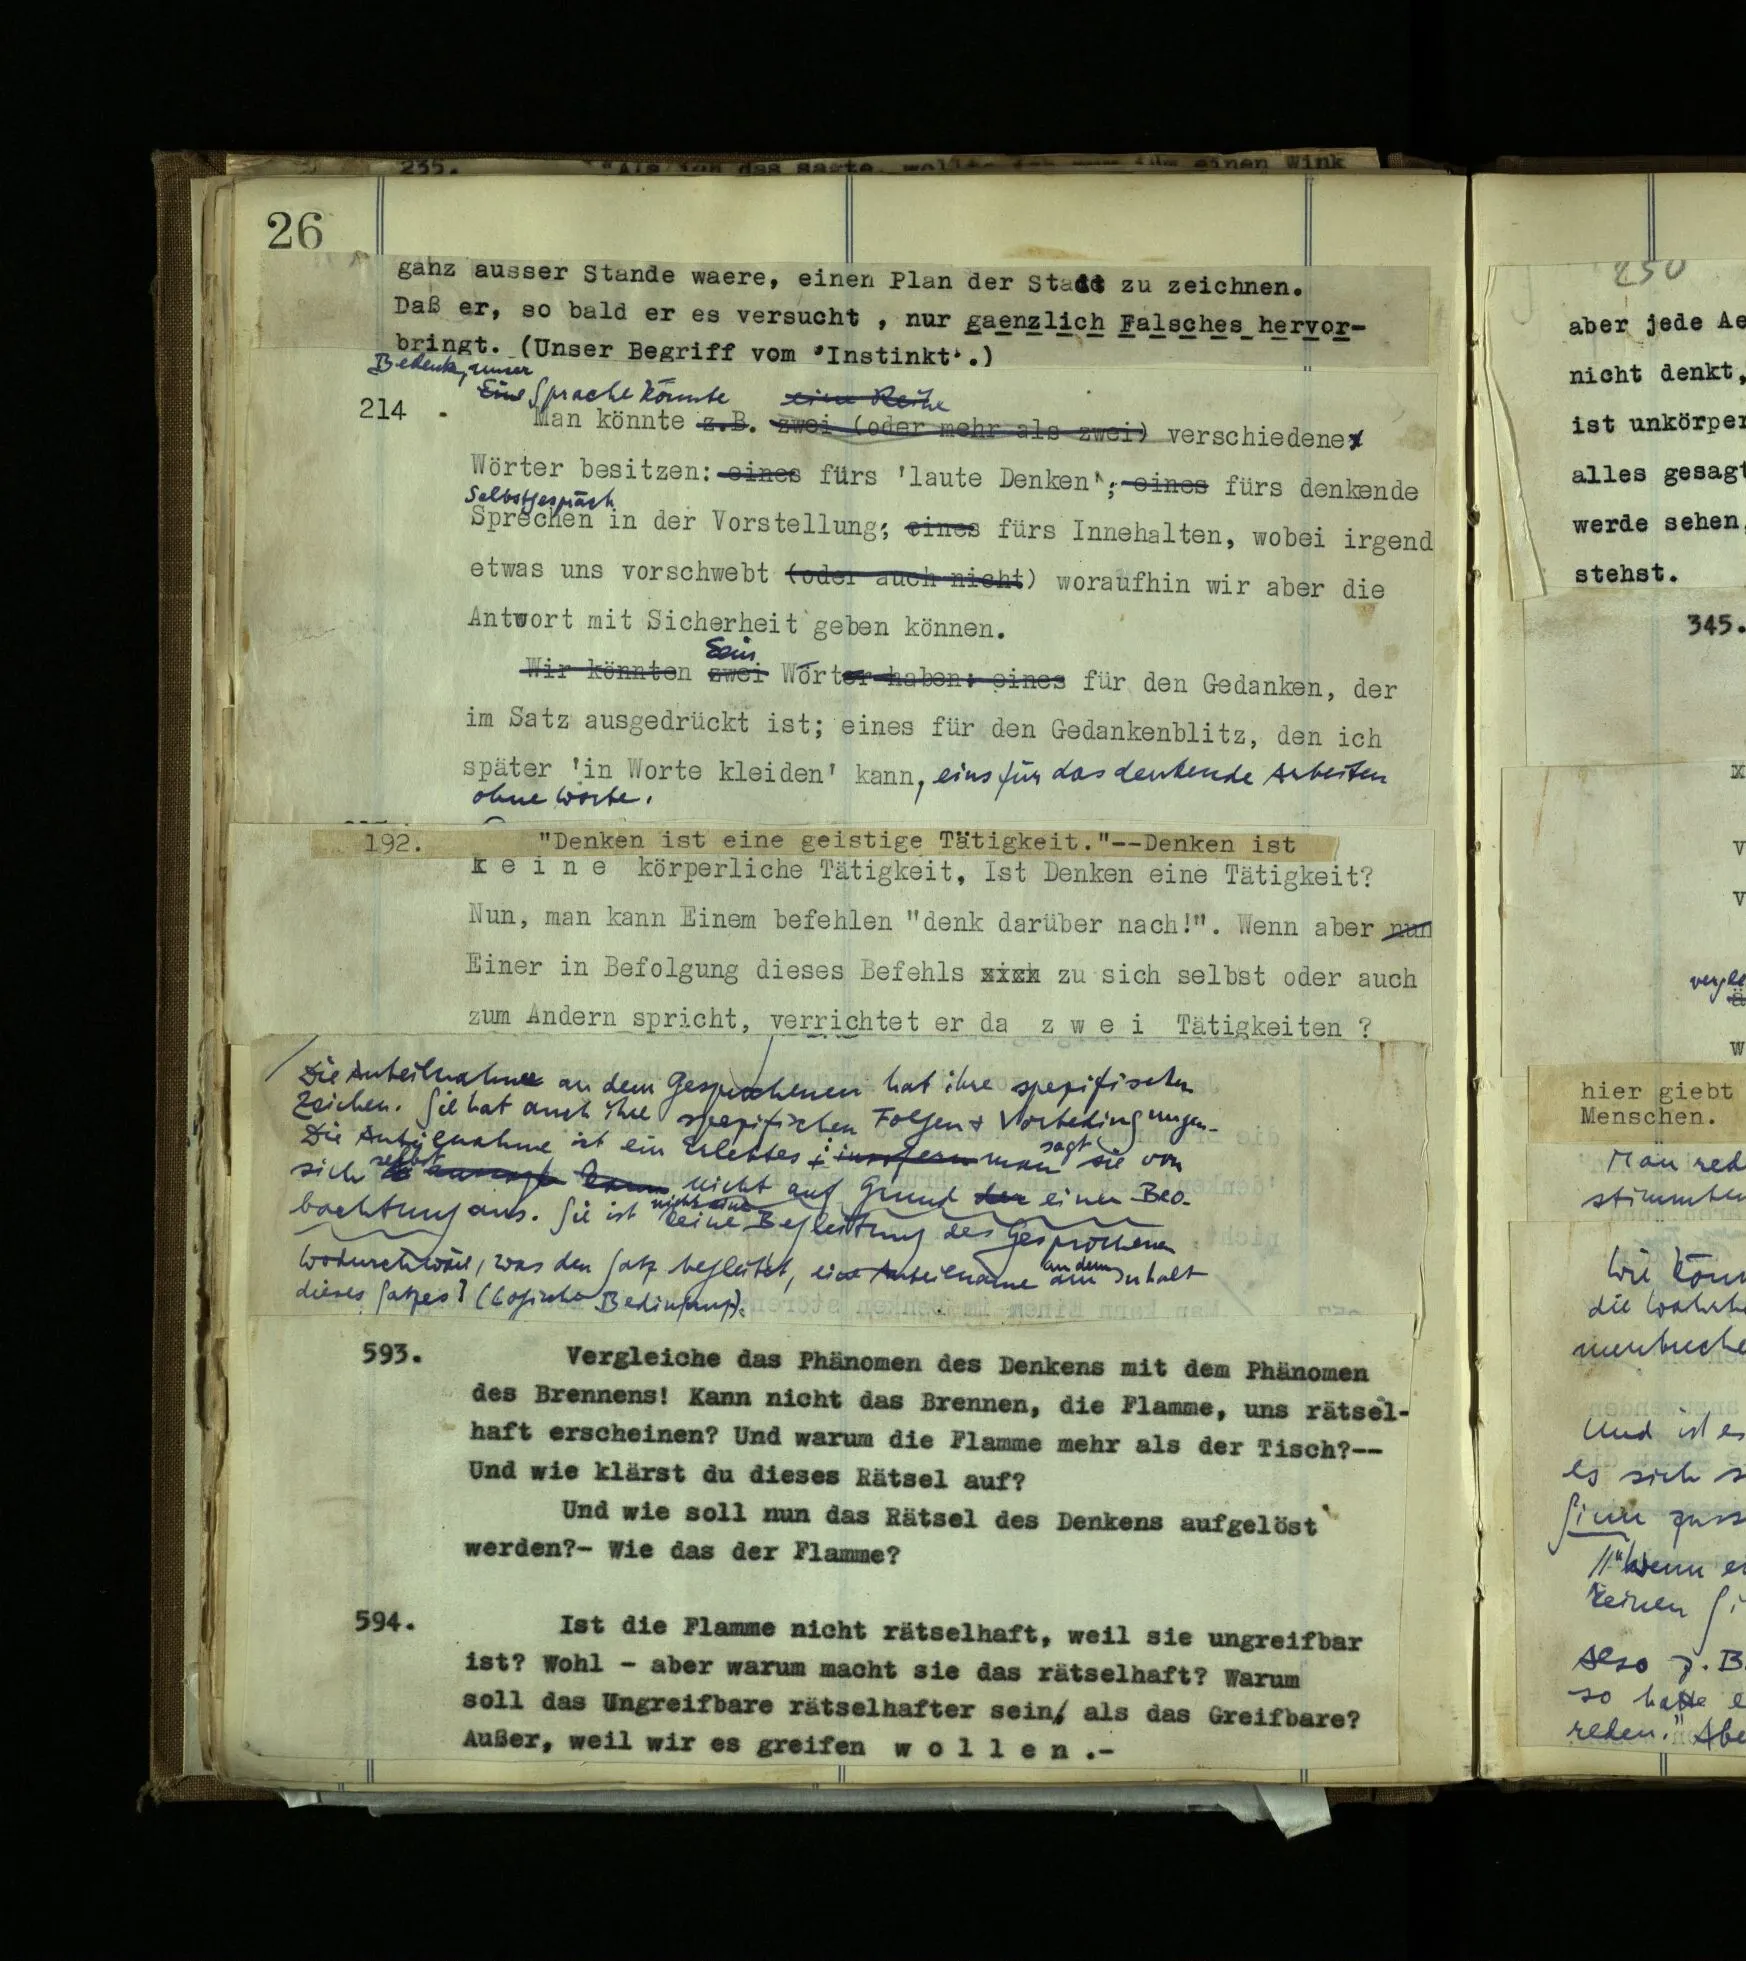 235. "Als ich das sagte, wollte ich nur einen Wink
26
ganz ausser Stande waere, einen Plan der Stadt zu zeichnen.
Daß er, so bald er es versucht , nur gaenzlich Falsches hervor-
bringt. (Unser Begriff vom 'Instinkt'.)
Bedenke, unser
Eine Sprache könnte eine Reihe
214 . Man könnte z.B. zwei (oder mehr als zwei) verschiedene
Wörter besitzen: eines fürs 'laute Denken'; eines fürs denkende
Selbstgespräch
Sprechen in der Vorstellung; eines fürs Innehalten, wobei irgend
etwas uns vorschwebt (oder auch nicht) woraufhin wir aber die
Antwort mit Sicherheit geben können.
Ein
Wir könnten zwei Wörter haben: eines für den Gedanken, der
im Satz ausgedrückt ist; eines für den Gedankenblitz, den ich
später 'in Worte kleiden' kann, eins für das denkende Arbeiten
ohne Worte.
192. "Denken ist eine geistige Tätigkeit."--Denken ist
k e i n e körperliche Tätigkeit. Ist Denken eine Tätigkeit?
Nun, man kann Einem befehlen "denk darüber nach!". Wenn aber nun
Einer in Befolgung dieses Befehls sich zu sich selbst oder auch
zum Andern spricht, verrichtet er da z w e i Tätigkeiten ?
Die Anteilnahme an dem Gesprochenen hat ihre spezifischen
Zeichen. Sie hat auch ihre spezifischen Folgen & Vorbedingungen.
Die Anteilnahme ist ein Erlebtes; insofern man sagt sie von
sich selbst aussagen kann nicht auf Grund der einer Beo-
bachtung aus. Sie ist nicht eine keine Begleitung des Gesprochenen
Wodurch wäre, was den Satz begleitet, eine Anteilname an dem am Inhalt
dieses Satzes? (Logische Bedingung).
593. Vergleiche das Phänomen des Denkens mit dem Phänomen
des Brennens! Kann nicht das Brennen, die Flamme, uns rätsel-
haft erscheinen? Und warum die Flamme mehr als der Tisch?--
Und wie klärst du dieses Rätsel auf?
Und wie soll nun das Rätsel des Denkens aufgelöst
werden?- Wie das der Flamme?
594. Ist die Flamme nicht rätselhaft, weil sie ungreifbar
ist? Wohl - aber warum macht sie das rätselhaft? Warum
soll das Ungreifbare rätselhafter sein, als das Greifbare?
Außer, weil wir es greifen w o l l e n .-
230
aber jede Ae
nicht denkt,
ist unkörper
alles gesagt
werde sehen,
stehst.
345.
v
v
vergle
w
hier giebt
Menschen.
Man red
stimmten
Wie könn
die Wahrh
Und ist es
es sich s
Sinn
"Wenn er
keinen Si
Also z.B.
so hatte e
reden." Abe